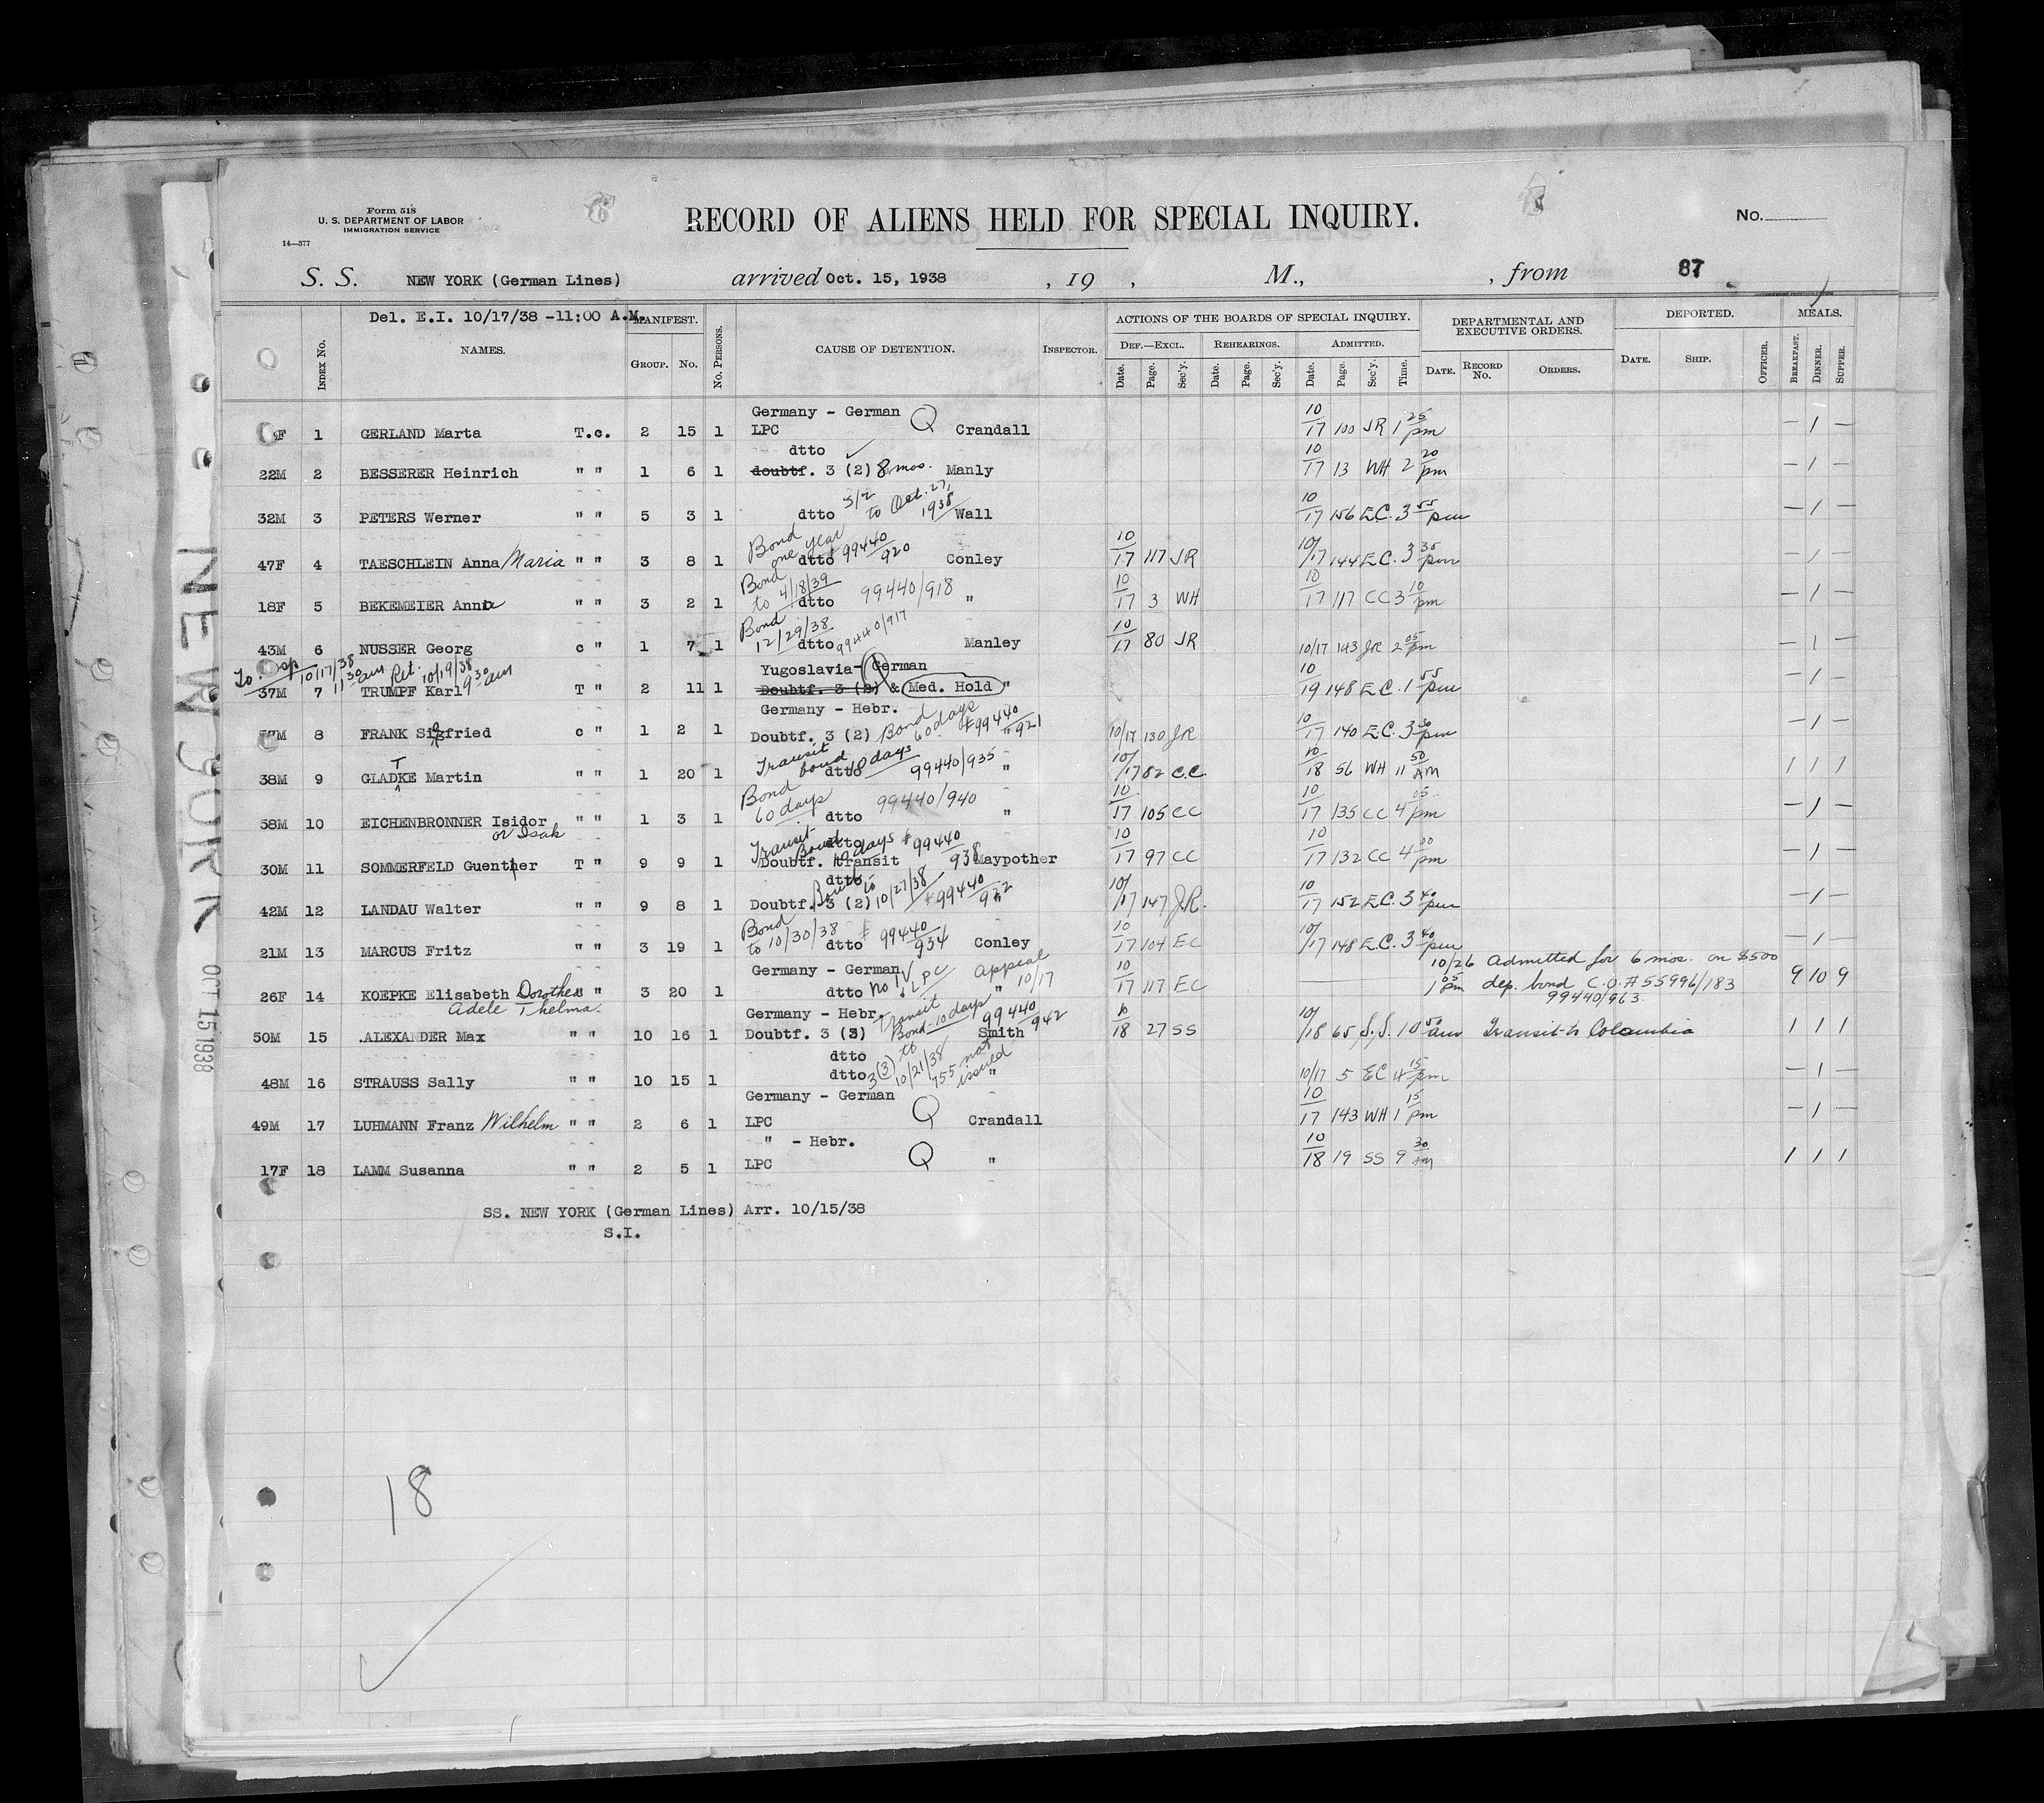 Form 518
U. S. DEPARTMENT OF LABOR
IMMIGRATION SERVICE
14—377
RECORD OF ALIENS HELD FOR SPECIAL INQUIRY.
No.
S. S. NEW YORK (German Lines) arrived Oct. 15, 1938 , 19 , M., , from 87
Del. E.I. 10/17/38 -11:00 A.M.
INDEX No. NAMES. MANIFEST. GROUP. No. No. PERSONS. CAUSE OF DETENTION. INSPECTOR.
ACTIONS OF THE BOARDS OF SPECIAL INQUIRY.
DEF.—EXCL. REHEARINGS. ADMITTED.
Date. Page. Sec'y. Date. Page. Sec'y. Date. Page. Sec'y. Time.
DEPARTMENTAL AND EXECUTIVE ORDERS.
DATE. RECORD No. ORDERS.
DEPORTED.
DATE. SHIP. OFFICER.
MEALS.
BREAKFAST. DINNER. SUPPER.
Germany - German
F 1 GERLAND Marta T.c. 2 15 1 LPC Q Crandall 10/17 100 JR 1 25 pm — 1 —
dtto ✓
22M 2 BESSERER Heinrich " " 1 6 1 doubtf. 3 (2) 8 mos. Manly 10/17 13 WH 2 20 pm — 1 —
32M 3 PETERS Werner " " 5 3 1 dtto 3/2 to Oct. 27, 1938 Wall 10/17 156 E.C. 3 55 pm — 1 —
47F 4 TAESCHLEIN Anna Maria " " 3 8 1 Bond one year dtto # 99440/920 Conley 10/17 117 JR 10/17 144 E.C. 3 35 pm — 1 —
18F 5 BEKEMEIER Anna " " 3 2 1 Bond to 4/18/39 dtto 99440/918 " 10/17 3 WH 10/17 117 CC 3 10 pm — 1 —
43M 6 NUSSER Georg c " 1 7 1 Bond 12/29/38 dtto 99440/917 Manley 10/17 80 JR 10/17 143 JR 2 05 pm — 1 —
To Hosp 10/17/38 11 30 am Ret. 10/19/38 9 30 am
Yugoslavia - German
37M 7 TRUMPF Karl T " 2 11 1 Doubtf. 3 (2) & Med. Hold " 10/19 148 E.C. 1 55 pm — 1 —
Germany - Hebr.
M 8 FRANK Siegfried c " 1 2 1 Doubtf. 3 (2) Bond 60 days #99440/921 " 10/17 130 JR 10/17 140 E.C. 3 30 pm — 1 —
38M 9 GLADTKE Martin " " 1 20 1 Transit bond 10 days dtto 99440/935 " 10/17 82 C.C. 10/18 56 WH 11 50 AM 1 1 1
58M 10 EICHENBRONNER Isidor " " 1 3 1 Bond 60 days dtto 99440/940 " 10/17 105 CC 10/17 135 CC 4 05 pm — 1 —
or Isak
Transit Bond 10 days # 99440/938
dtto
30M 11 SOMMERFELD Guenther T " 9 9 1 Doubtf. transit Maypother 10/17 97 CC 10/17 132 CC 4 00 pm — 1 —
dtto
42M 12 LANDAU Walter " " 9 8 1 Doubtf. 3 (2) Bond to 10/27/38 # 99440/922 " 10/17 147 J.R. 10/17 152 E.C. 3 40 pm — 1 —
21M 13 MARCUS Fritz " " 3 19 1 Bond to 10/30/38 dtto # 99440/934 Conley 10/17 104 EC 10/17 148 E.C. 3 40 pm — 1 —
Germany - German
26F 14 KOEPKE Elisabeth Dorothea " " 3 20 1 dtto no I.V. LPC " Appeal 10/17 10/17 117 EC 10/26 Admitted for 6 mos. on $500
1 05 pm dep. bond C.O.# 55996/183 9 10 9
Adele Thelma. 99440/963.
Germany - Hebr.
50M 15 ALEXANDER Max " " 10 16 1 Doubtf. 3 (3) Transit Bond-10 days 99440/942 Smith 10/18 27 SS 10/18 65 S.S. 10 50 am Transit to Colombia 1 1 1
dtto
48M 16 STRAUSS Sally " " 10 15 1 dtto 3(3) to 10/21/38 755 not issued " 10/17 5 EC 4 15 pm — 1 —
Germany - German
49M 17 LUHMANN Franz Wilhelm " " 2 6 1 LPC Q Crandall 10/17 143 WH 1 15 pm — 1 —
" - Hebr.
17F 18 LAMM Susanna " " 2 5 1 LPC Q " 10/18 19 SS 9 30 AM 1 1 1
SS. NEW YORK (German Lines) Arr. 10/15/38
S.I.
18
NEW YORK OCT 15 1938